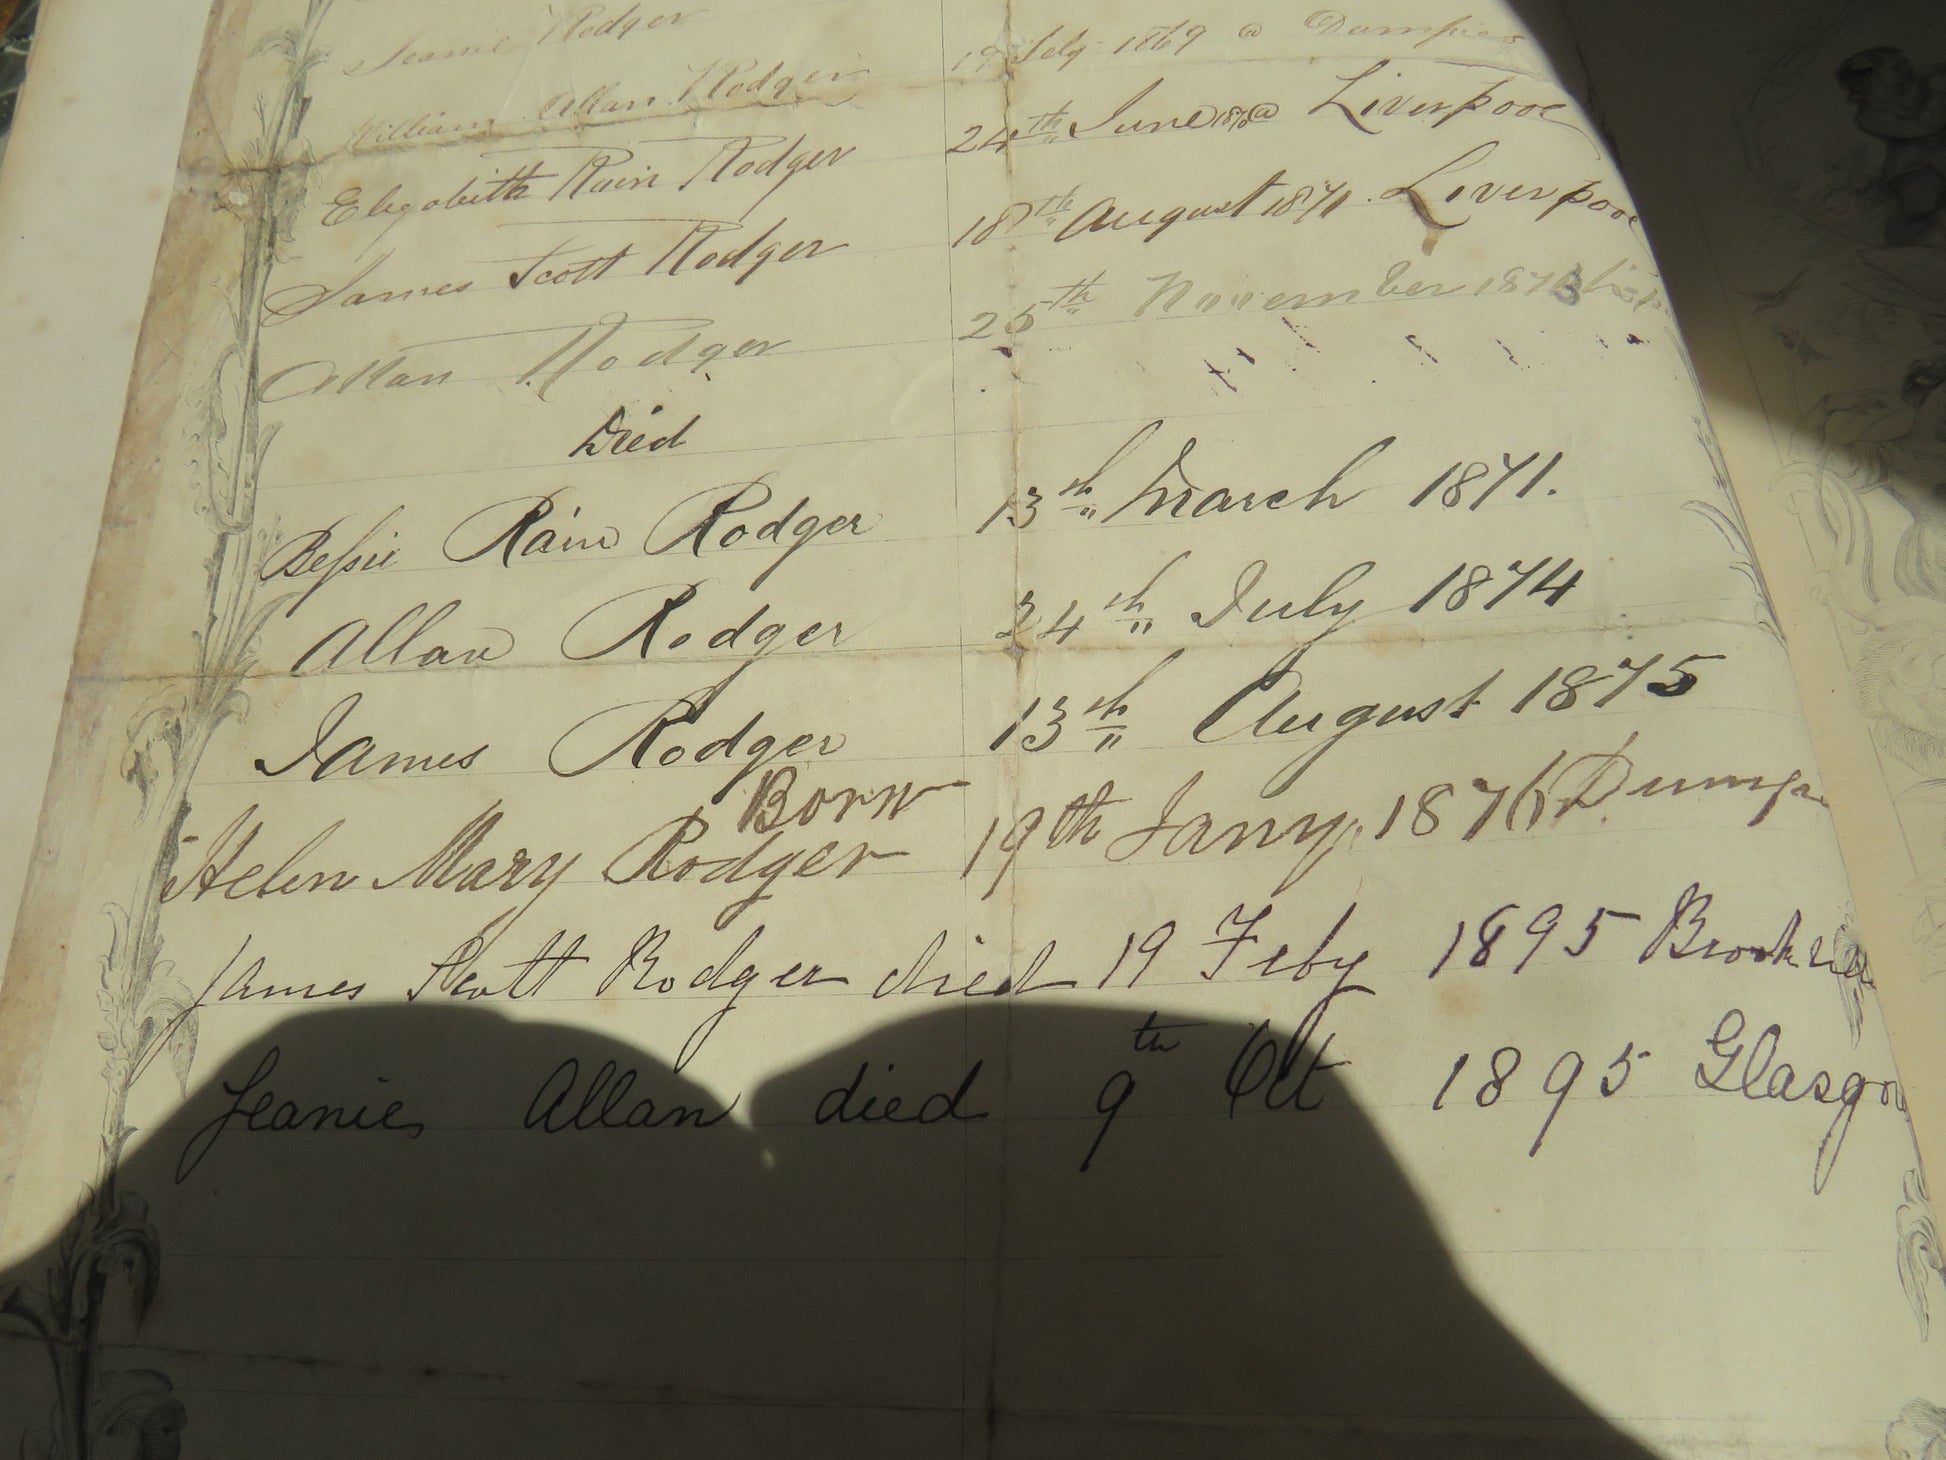 Jeanie Rodger
William Allan Rodger 19 Feby 1869 @ Dumfries
Elezabeith Rain Rodger 24th June 1870 @ Liverpool
James Scott Rodger 18th August 1871. Liverpool
Allan Rodger 25th November 1873
Died
Bessie Rain Rodger 13th March 1871.
Allan Rodger 24th July 1874
James Rodger 13th August 1875
Born
Helen Mary Rodger 19th Jany. 1876
James Scott Rodger died 19 Feby 1895
Jeanie Allan died 9th Oct 1895 Glasgow